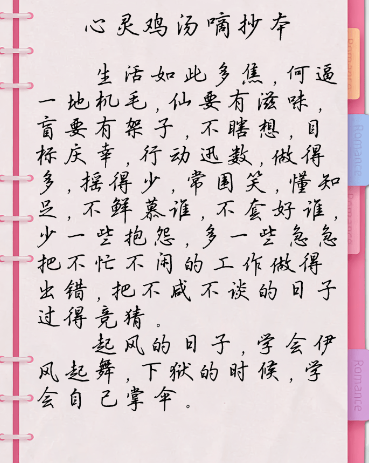 心灵鸡汤嘀抄本
生活如此多焦,何逼
一地机毛,仙要有滋味,
盲要有架子,不瞎想,目
标庆幸,行动迅数,做得
多,摇得少,常国笑,懂知
足,不鲜慕谁,不套好谁,
少一些抱怨,多一些急急
把不忙不闲的工作做得
出错,把不咸不谈的日子
过得竞猜。
起风的日子,学会伊
风起舞,下狱的时候,学
会自己掌伞。
Romance
Romance
Romance
Romance